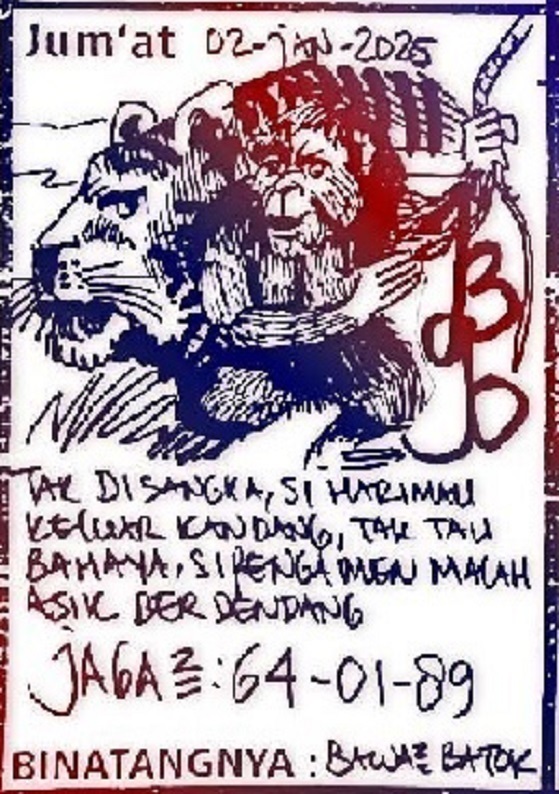 Jum'at 02-JAN-2025
TAK DISANGKA, SI HARIMAU
KELUAR KANDANG, TAK TAU
BAHAYA, SI PENGAMEN MALAH
ASIK BERDENDANG
JAGA2: 64-01-89
BINATANGNYA : BAWA2 BATOK